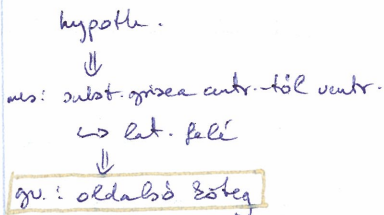 hypoth.
⇓
mes: subst. grisea centr.-tól ventr.
↪ lat. felé
⇓
gv.: oldalsó köteg